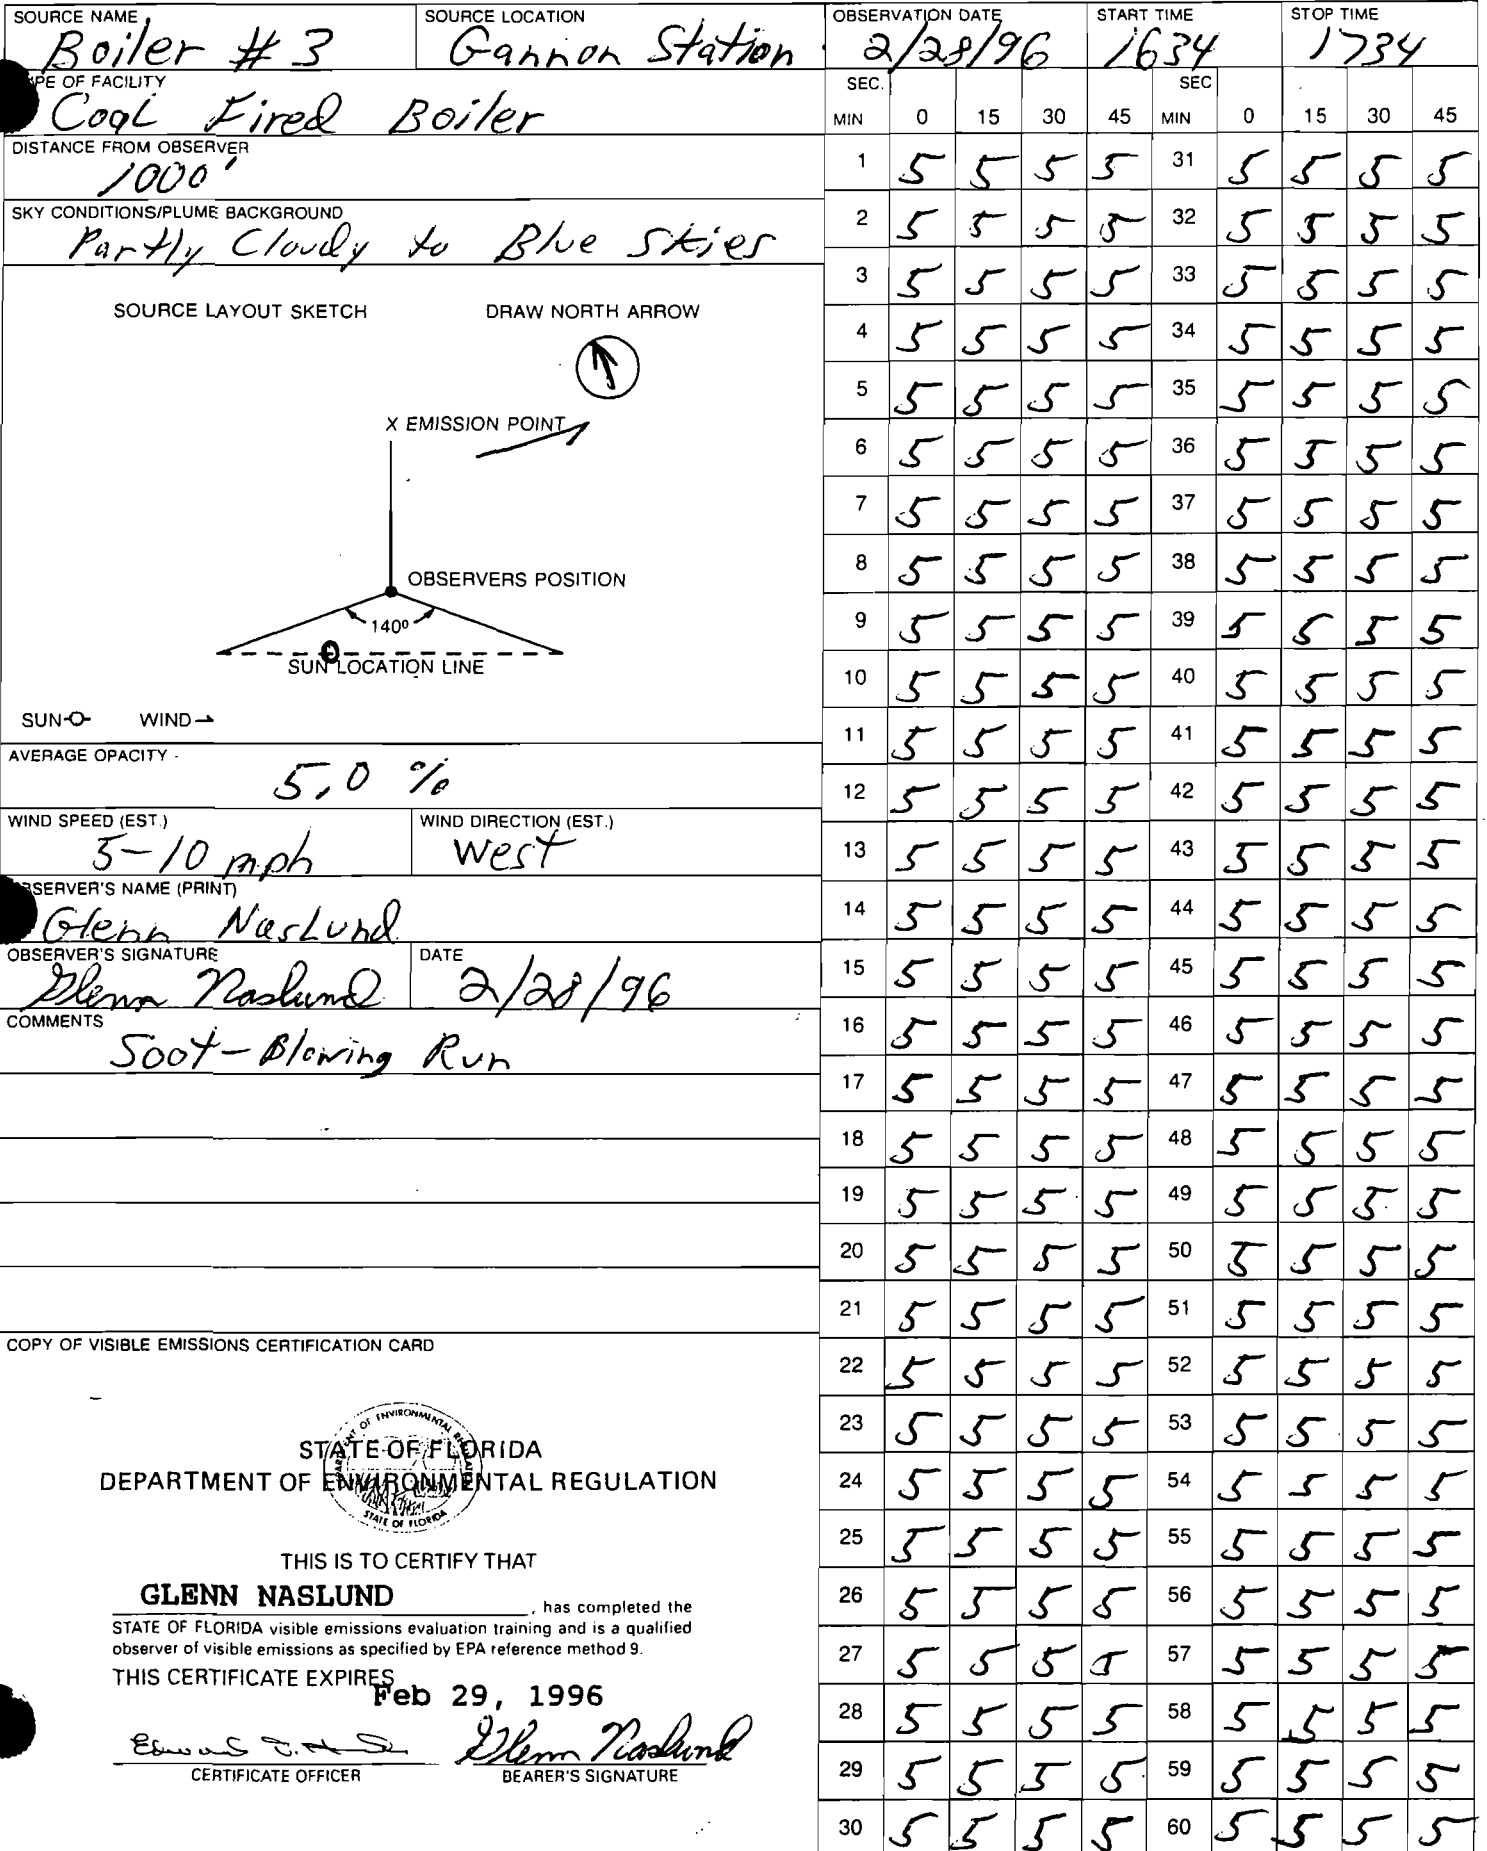 SOURCE NAME SOURCE LOCATION OBSERVATION DATE START TIME STOP TIME
Boiler # 3 Gannon Station 2/28/96 1634 1734
PE OF FACILITY
Coal Fired Boiler
DISTANCE FROM OBSERVER
1000'
SKY CONDITIONS/PLUME BACKGROUND
Partly Cloudy to Blue Skies
SOURCE LAYOUT SKETCH DRAW NORTH ARROW
X EMISSION POINT
OBSERVERS POSITION
140º
SUN LOCATION LINE
SUN WIND
AVERAGE OPACITY
5.0 %
WIND SPEED (EST.) WIND DIRECTION (EST.)
5-10 mph West
SERVER'S NAME (PRINT)
Glenn Naslund
OBSERVER'S SIGNATURE DATE
Glenn Naslund 2/28/96
COMMENTS
Soot-Blowing Run
COPY OF VISIBLE EMISSIONS CERTIFICATION CARD
STATE OF FLORIDA
DEPARTMENT OF ENVIRONMENTAL REGULATION
STATE OF FLORIDA
THIS IS TO CERTIFY THAT
GLENN NASLUND , has completed the
STATE OF FLORIDA visible emissions evaluation training and is a qualified
observer of visible emissions as specified by EPA reference method 9.
THIS CERTIFICATE EXPIRES
Feb 29, 1996
Glenn Naslund
CERTIFICATE OFFICER BEARER'S SIGNATURE
SEC. SEC
MIN 0 15 30 45 MIN 0 15 30 45
1 5 5 5 5 31 5 5 5 5
2 5 5 5 5 32 5 5 5 5
3 5 5 5 5 33 5 5 5 5
4 5 5 5 5 34 5 5 5 5
5 5 5 5 5 35 5 5 5 5
6 5 5 5 5 36 5 5 5 5
7 5 5 5 5 37 5 5 5 5
8 5 5 5 5 38 5 5 5 5
9 5 5 5 5 39 5 5 5 5
10 5 5 5 5 40 5 5 5 5
11 5 5 5 5 41 5 5 5 5
12 5 5 5 5 42 5 5 5 5
13 5 5 5 5 43 5 5 5 5
14 5 5 5 5 44 5 5 5 5
15 5 5 5 5 45 5 5 5 5
16 5 5 5 5 46 5 5 5 5
17 5 5 5 5 47 5 5 5 5
18 5 5 5 5 48 5 5 5 5
19 5 5 5 5 49 5 5 5 5
20 5 5 5 5 50 5 5 5 5
21 5 5 5 5 51 5 5 5 5
22 5 5 5 5 52 5 5 5 5
23 5 5 5 5 53 5 5 5 5
24 5 5 5 5 54 5 5 5 5
25 5 5 5 5 55 5 5 5 5
26 5 5 5 5 56 5 5 5 5
27 5 5 5 5 57 5 5 5 5
28 5 5 5 5 58 5 5 5 5
29 5 5 5 5 59 5 5 5 5
30 5 5 5 5 60 5 5 5 5